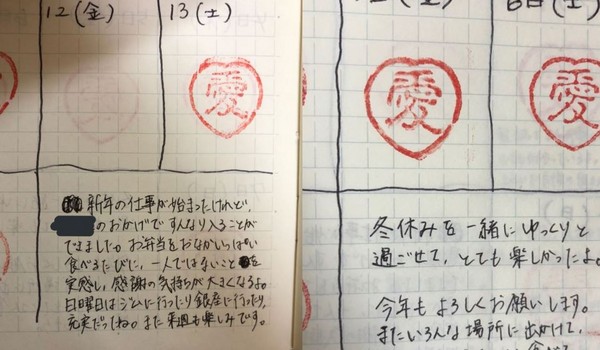 12(金)
13(土)
愛
新年の仕事が始まったけれど、
のおかげですんなり入ることが
できました。お弁当をおなかいっぱい
食べるたびに、一人ではないことを
実感し、感謝の気持ちが大きくなるよ。
日曜日はジムに行ったり銀座に行ったり、
充実だったね。また来週も楽しみです。
(金)
6日(土)
愛
愛
冬休みを一緒にゆっくりと
過ごせて、とても楽しかったよ。
今年もよろしくお願いします。
またいろんな場所に出かけて、